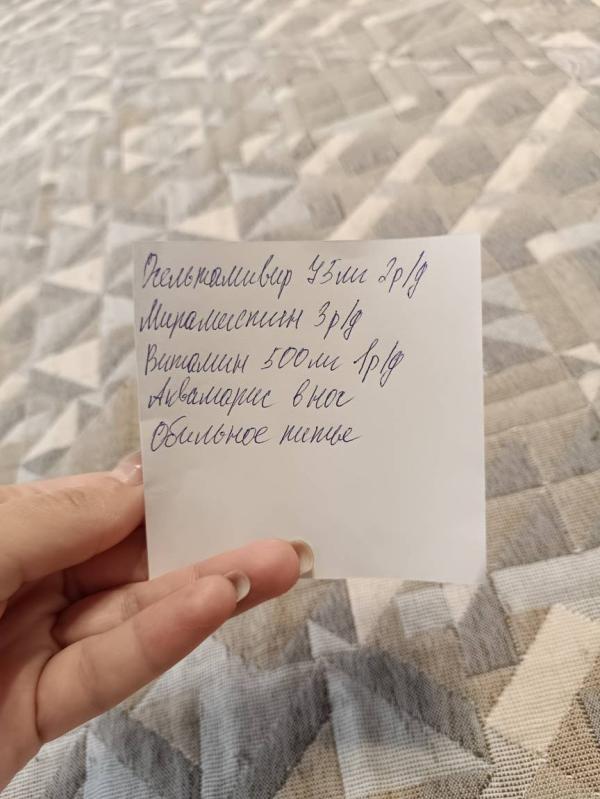 Осельтамивир 75мг 2р/д
Мирамистин 3р/д
Витамин 500мг 1р/д
Аквамарис в нос
Обильное питье